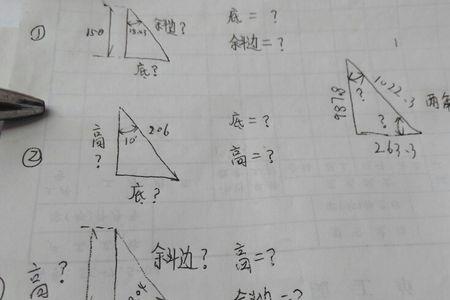 ① 150 18.43 斜边? 底 = ?
斜边 = ?
底?
987.8 ? 1022.3 两
?
263.3
② 高? 10° 206 底 = ?
高 = ?
底?
高? 斜边? 高 = ?
斜边 = ?